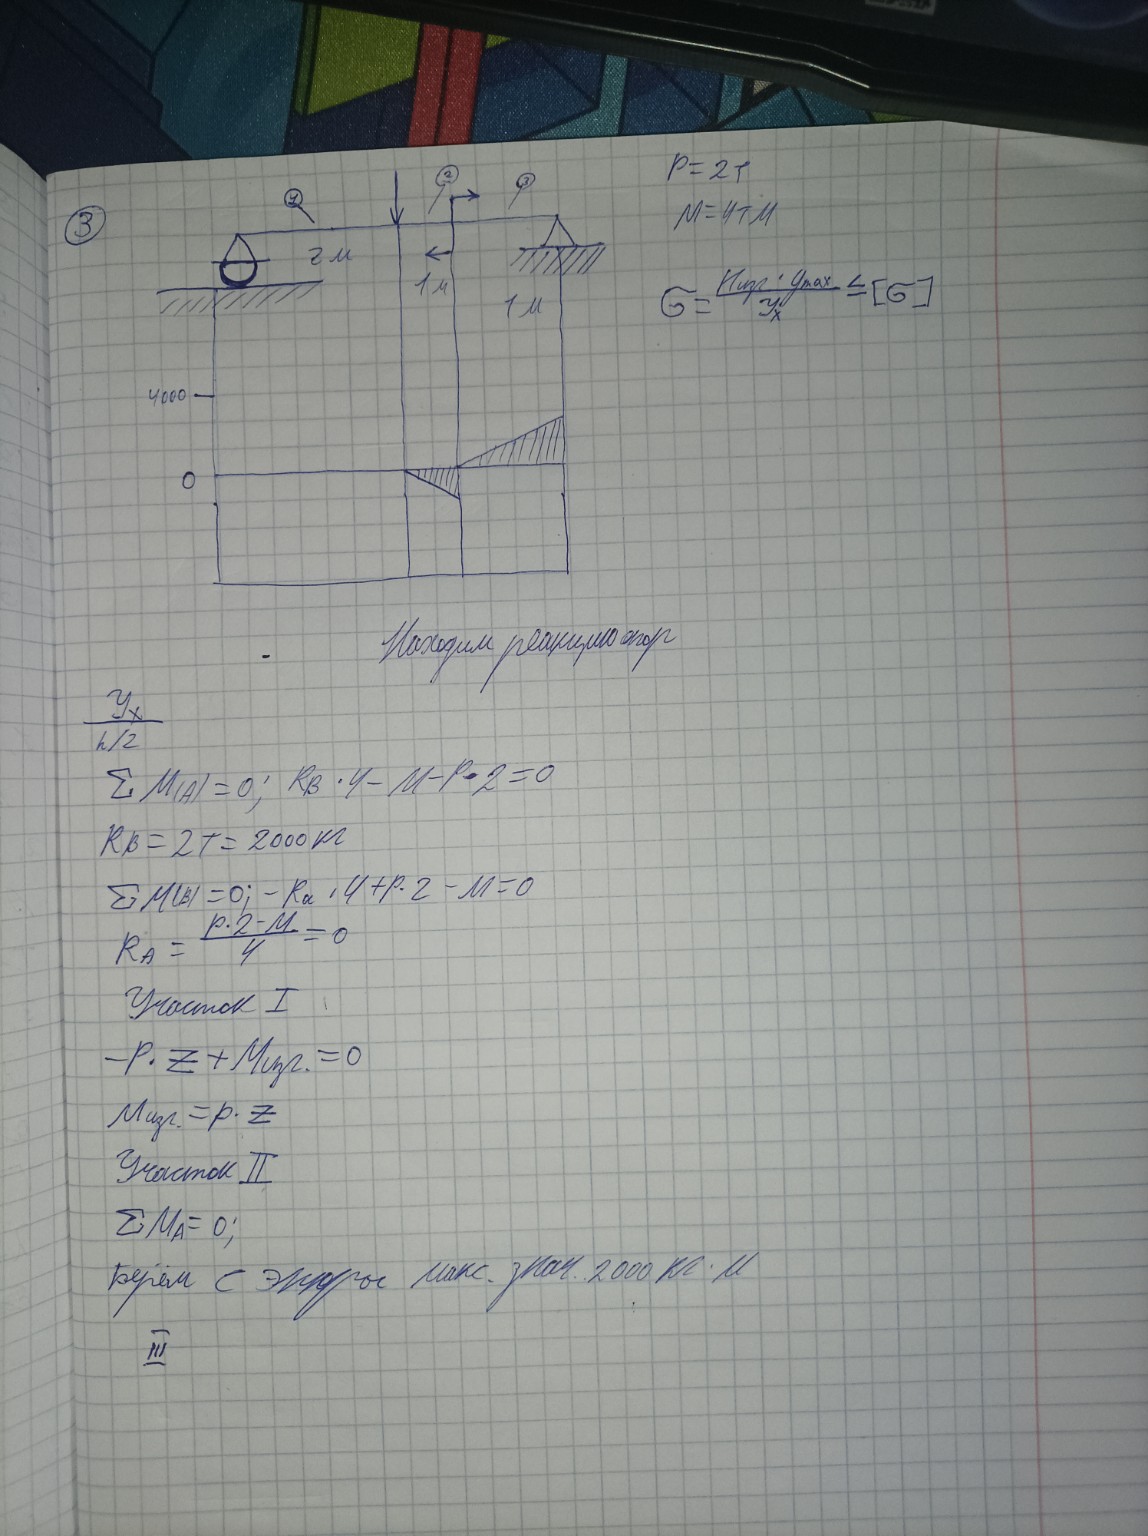 3
P=2т
M=4тм
1
2
3
2м
1м
1м
σ = Mизг · ymax / Yx ≤ [σ]
4000
0
Находим реакцию опор
Yx
h/2
ΣM(A)=0; RB·4-M-P·2=0
RB=2т=2000кг
ΣM(B)=0; -Ra·4+P·2-M=0
RA= P·2-M / 4 =0
Участок I
-P·z+Mизг.=0
Mизг.=p·z
Участок II
ΣMA=0;
Берём с эпюры макс. знач. 2000 кг·м
III